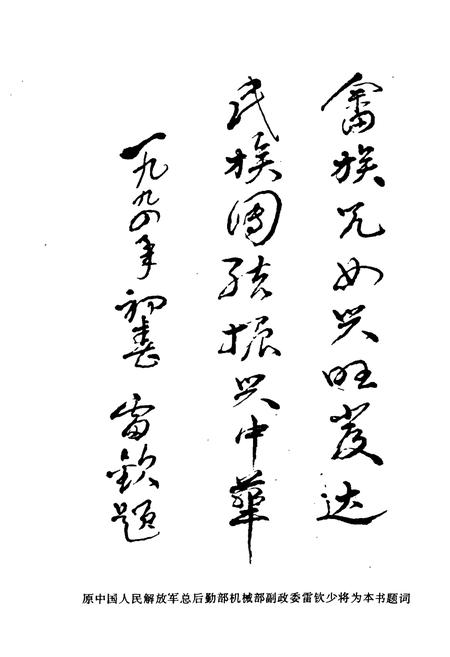 畲族儿女兴旺发达
民族团结振兴中华
一九九四年初春 雷钦题
原中国人民解放军总后勤部机械部副政委雷钦少将为本书题词